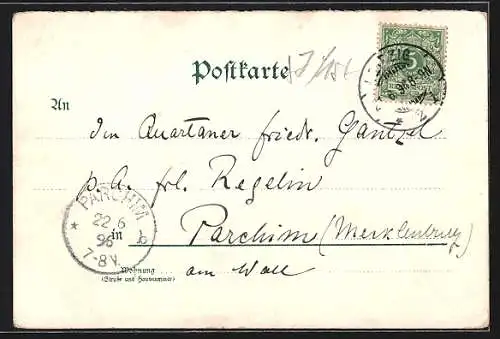 Postkarte
An
den Quartaner friedr. Gantzel
p. A. frl. Regelin
in Parchim (Mecklenburg)
am Wall
Wohnung
(Straße und Hausnummer)
PARCHIM
22 6
96
7-8V.
5